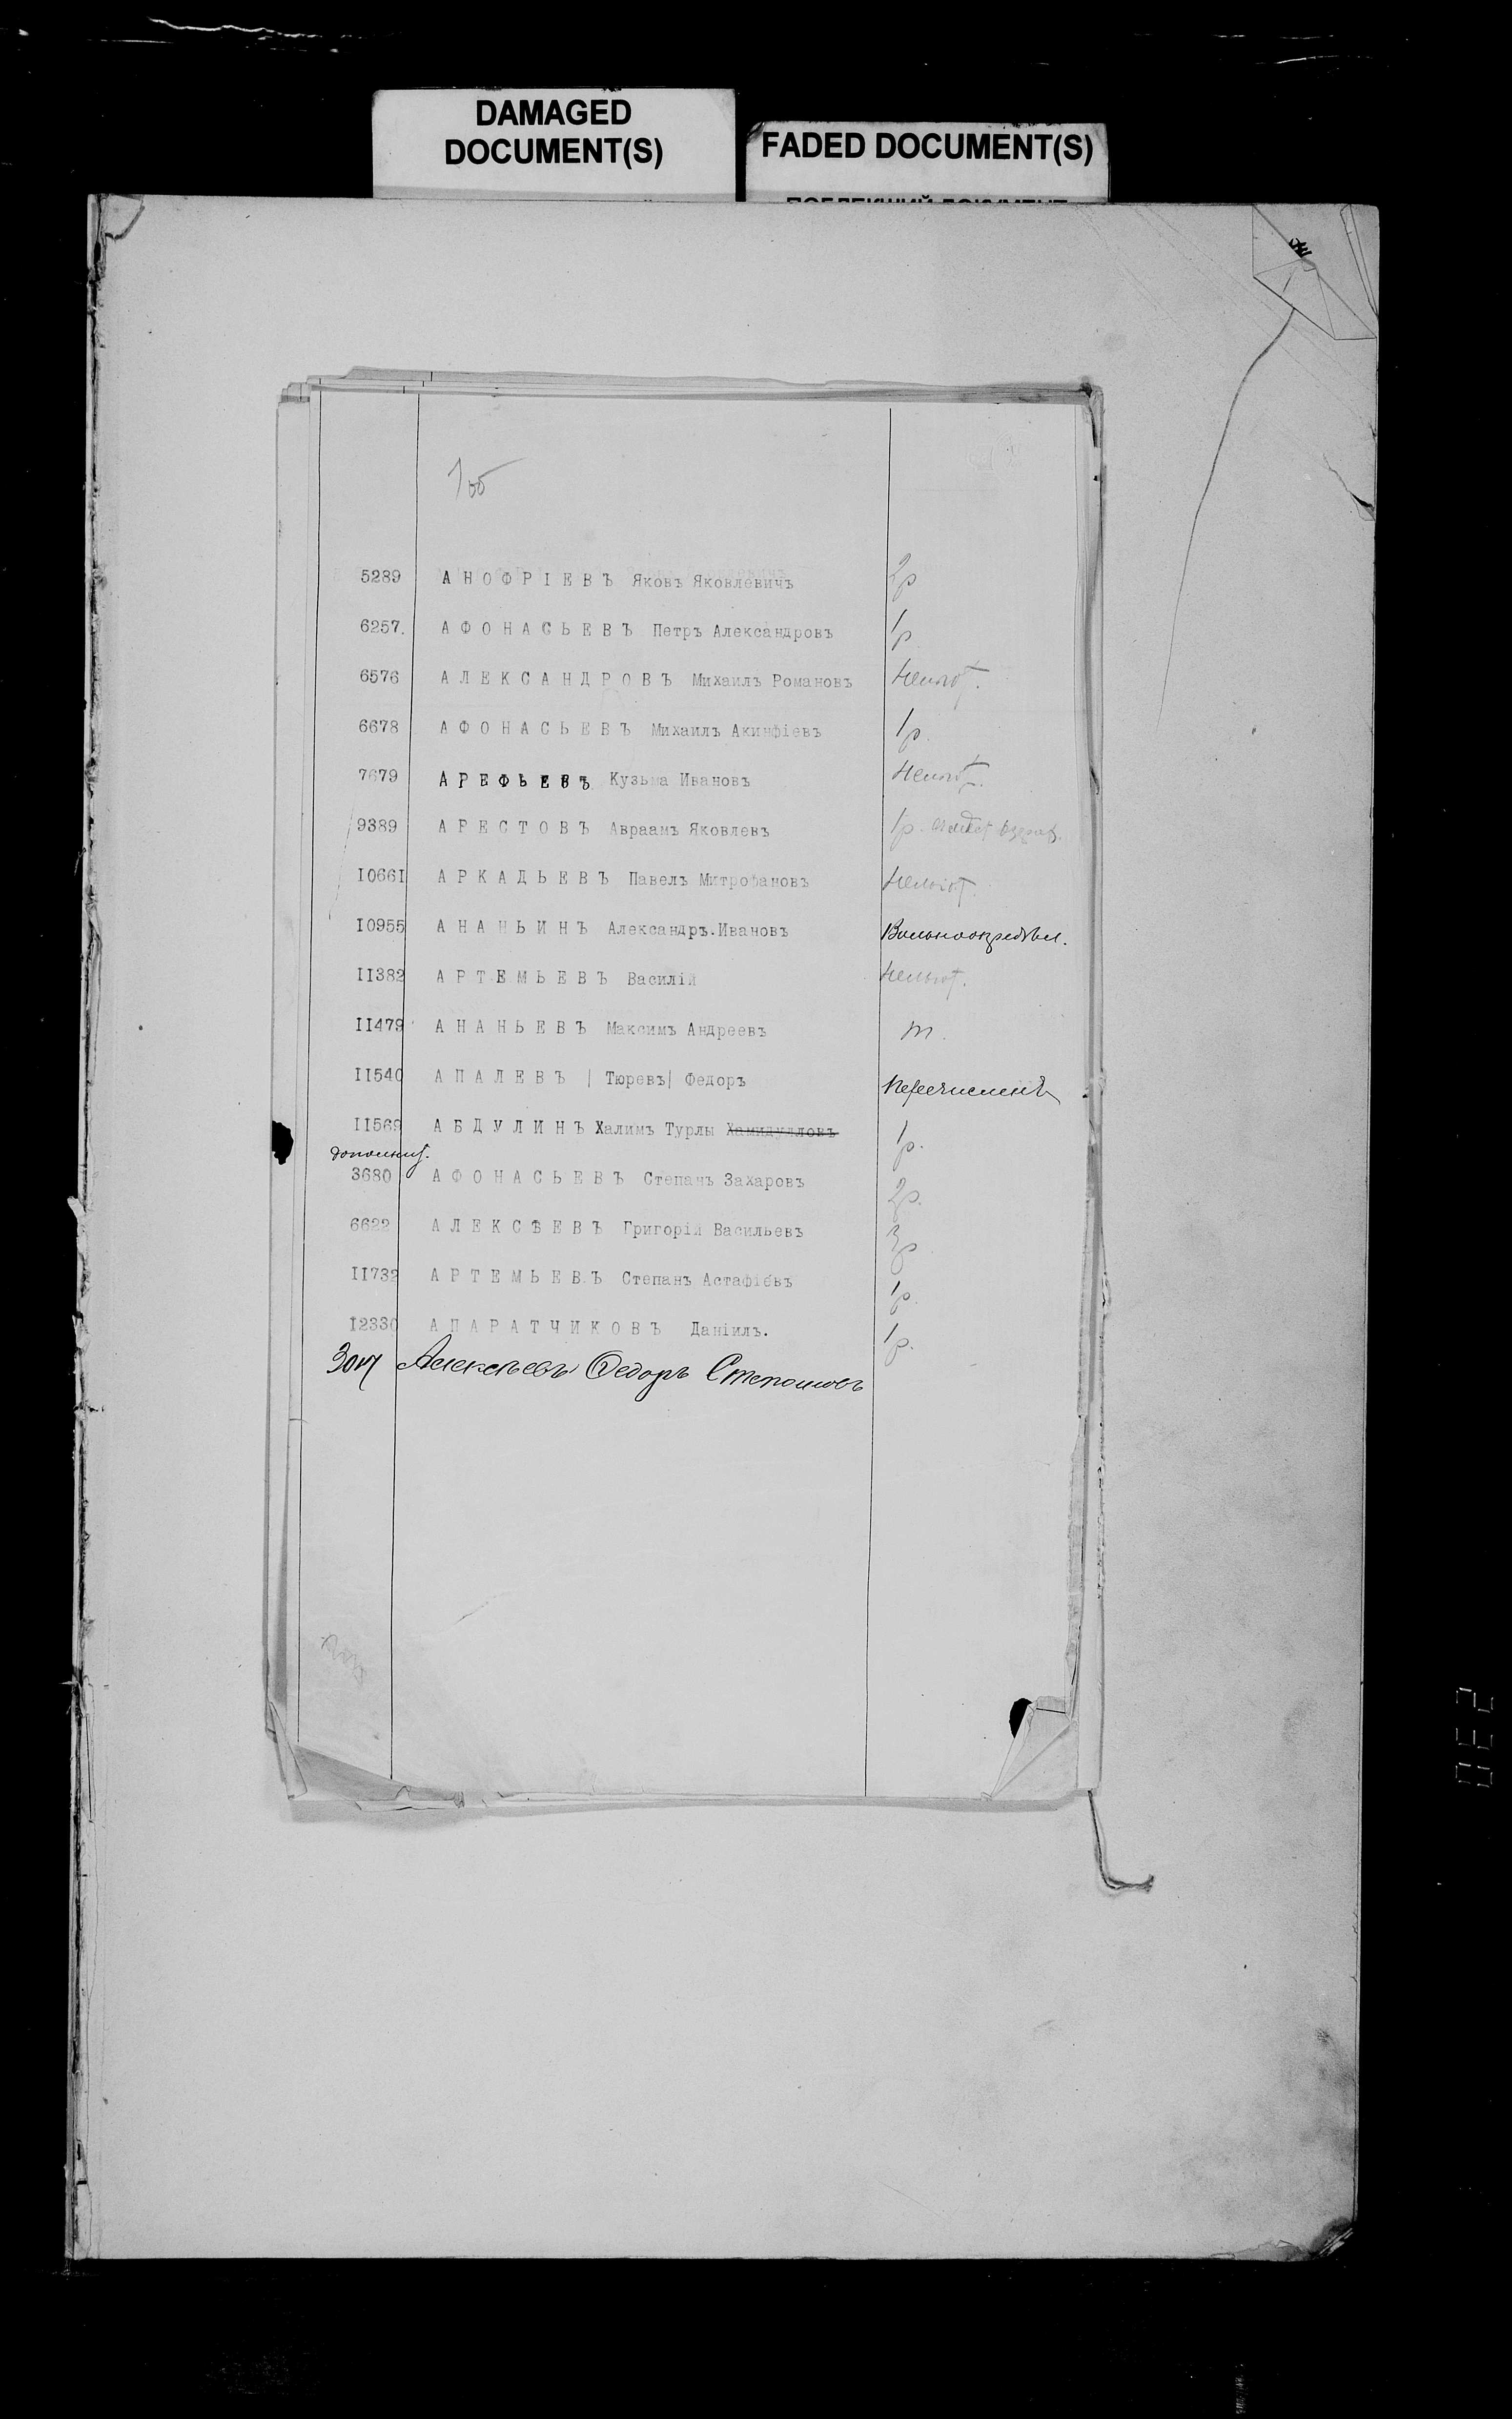 DAMAGED
DOCUMENT(S)
FADED DOCUMENT(S)
5289 АНОФРІЕВЪ Яковъ Яковлевичъ 2р
6257. АФОНАСЬЕВЪ Петръ Александровъ 1р
6576 АЛЕКСАНДРОВЪ Михаилъ Романовъ Нельгот.
6678 АФОНАСЬЕВЪ Михаилъ Акинфіевъ 1р.
7679 АРЕФЬЕВЪ Кузьма Ивановъ Нельгот.
9389 АРЕСТОВЪ Авраамъ Яковлевъ 1р.
10661 АРКАДЬЕВЪ Павелъ Митрофановъ Нельгот.
10955 АНАНЬИНЪ Александръ.Ивановъ Вольноопредѣл.
11382 АРТЕМЬЕВЪ Василій Нельгот.
11479 АНАНЬЕВЪ Максимъ Андреевъ т.
11540 АПАЛЕВЪ |Тюревъ| Федоръ Перечисленъ
11569 АБДУЛИНЪ Халимъ Турлы Хамидулловъ 1р.
дополнит.
3680 АФОНАСЬЕВЪ Степанъ Захаровъ 2р.
6622 АЛЕКСѢЕВЪ Григорій Васильевъ 3р
11732 АРТЕМЬЕВЪ Степанъ Астафіевъ 1р.
12330 АПАРАТЧИКОВЪ Даніилъ. 1р.
Алексѣевъ Федоръ Степановъ
230